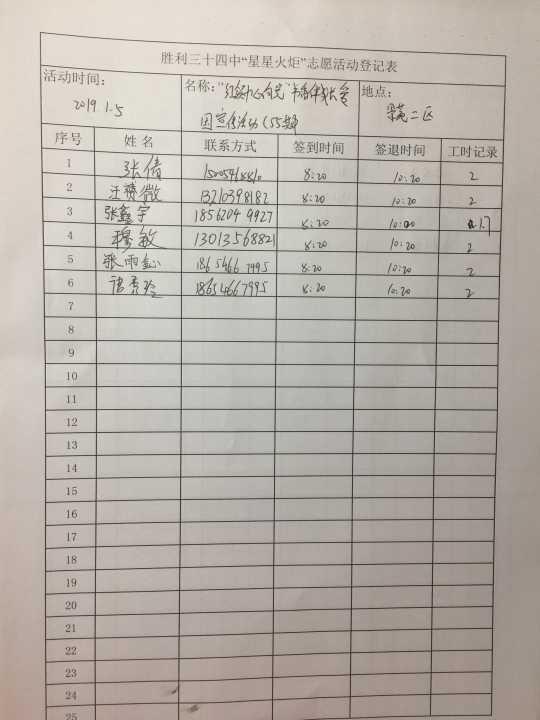 胜利三十四中“星星火炬”志愿活动登记表
活动时间： 名称：“红领巾心向党” 地点：
2019.1.5 55期 二区
序号 姓名 联系方式 签到时间 签退时间 工时记录
1 张倩 8:20 10:20 2
2 汪赞微 13210398182 8:20 10:20 2
3 张鑫宇 18562049927 8:20 10:00 1.7
4 穆敏 13013568821 8:20 10:20 2
5 张雨鈊 18654667995 8:20 10:20 2
6 唐秀玲 18654667995 8:20 10:20 2
7
8
9
10
11
12
13
14
15
16
17
18
19
20
21
22
23
24
25